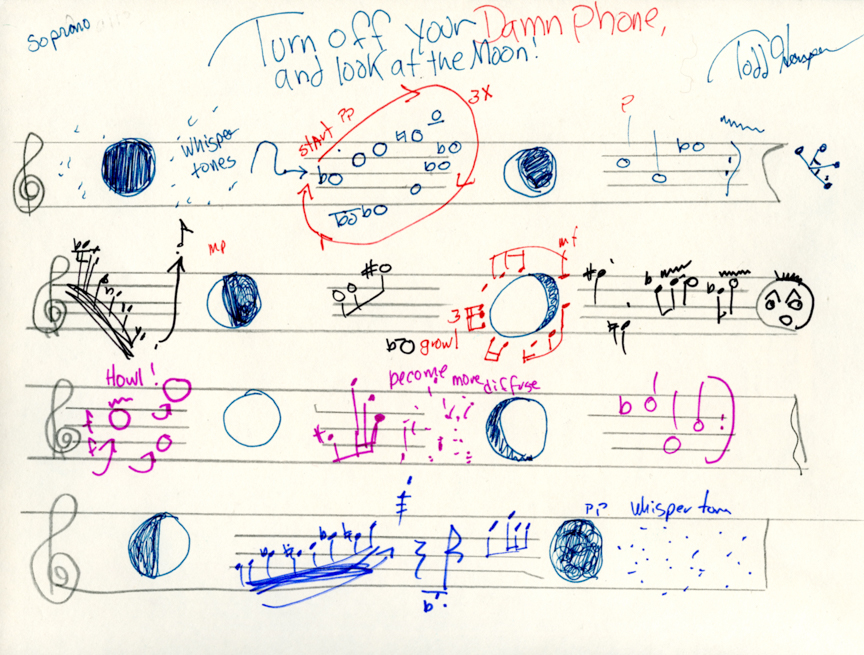 Soprano
Turn off your Damn Phone,
and look at the Moon!
start PP
3x
Whisper
tones
P
mp
mf
3
growl
Howl!
become more diffuse
f
f
PP whisper